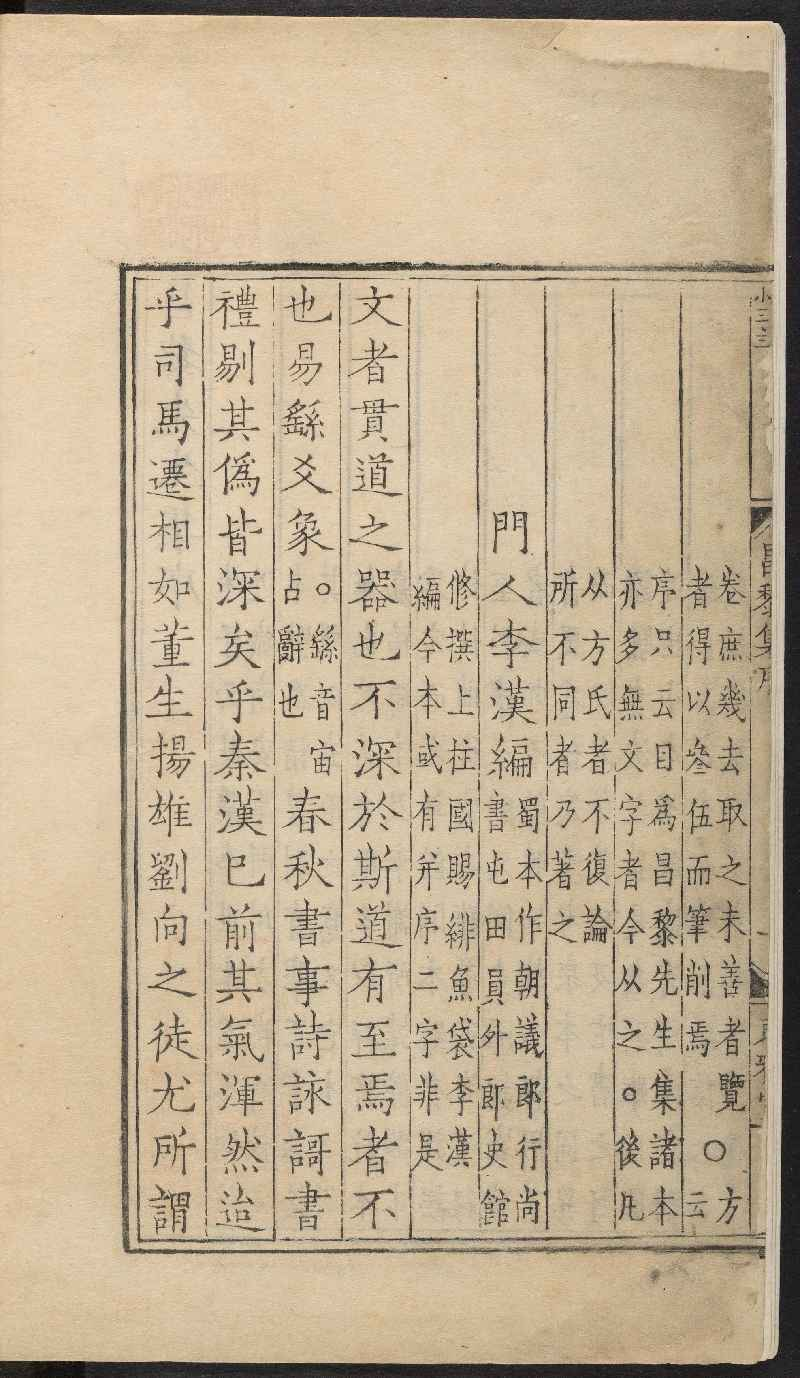 昌黎集序
卷庶幾去取之未善者覽 ○方
者得以叅伍而筆削焉 云
序只云目爲昌黎先生集諸本
亦多無文字者今从之○後凡
从方氏者不復論
所不同者乃著之
門人李漢編 蜀本作朝議郎行尚
書屯田員外郎史館
修撰上柱國賜緋魚袋李漢
編今本或有并序二字非是
文者貫道之器也不深於斯道有至焉者不
也易繇爻象○繇音宙占辭也春秋書事詩詠謌書
禮剔其僞皆深矣乎秦漢巳前其氣渾然迨
乎司馬遷相如董生揚雄劉向之徒尤所謂